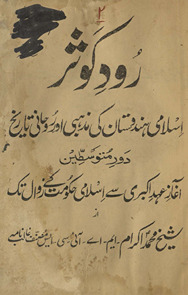 ۲
رودِ کوثر
اسلامی ہندوستان کی مذہبی اور روحانی تاریخ
دورِ متوسطین
آغازِ عہدِ اکبری سے اسلامی حکومت کے زوال تک
از
شیخ محمد اکرام۔ ایم۔ اے۔ آئی۔ سی۔ ایس